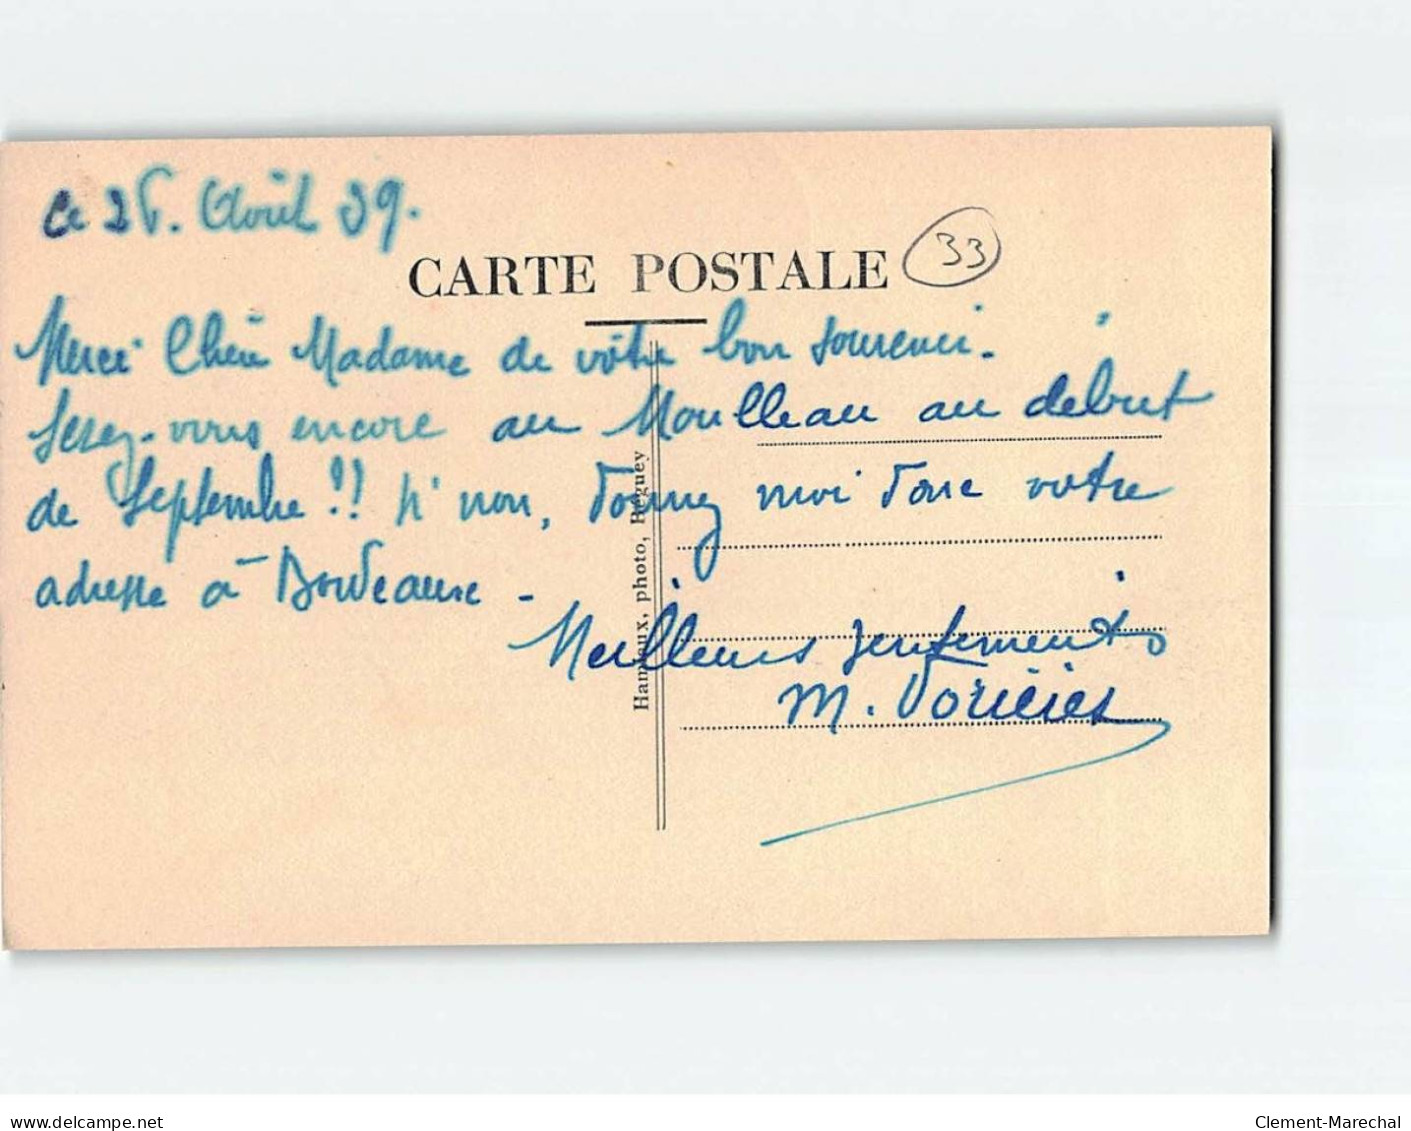 Le 26. Avril 39.
CARTE POSTALE
33
Merci Chère Madame de votre bon souvenir.
Serez-vous encore au Moulleau au début
de Septembre !! Si non, donnez moi donc votre
adresse à Bordeaux -
Meilleurs sentiments
M.
photo, Béguey
www.delcampe.net
Clement-Marechal